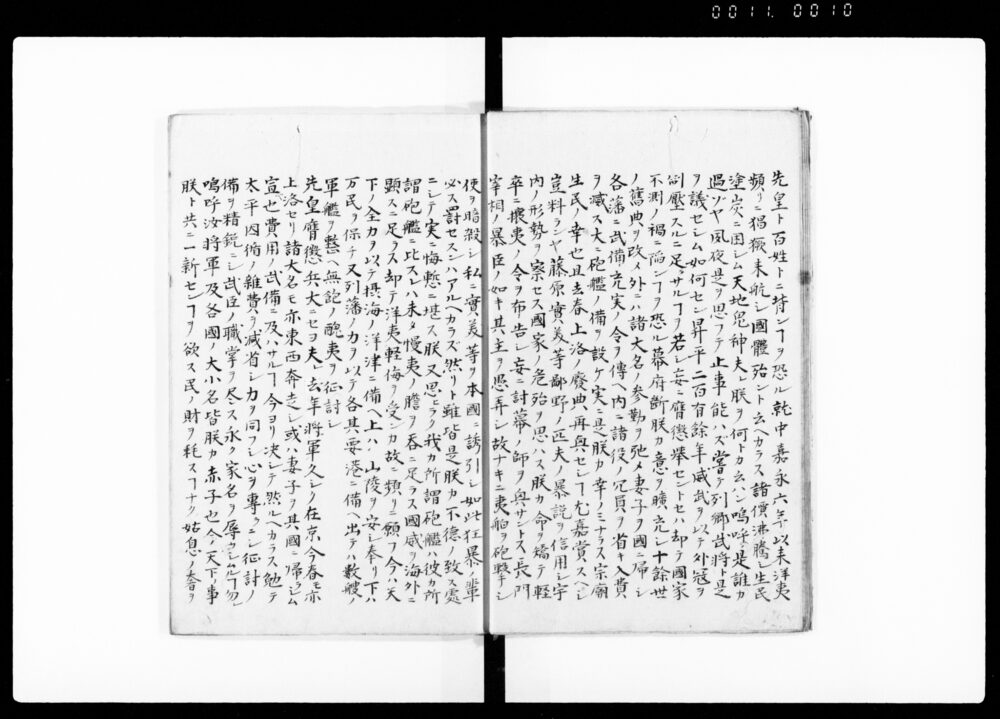 0011. 0010
先皇ト百姓トニ背ンヿヲ恐ル就中嘉永六年以来洋夷
頻リニ猖獗来航シ國體殆ント云ヘカラス諸價沸騰シ生民
塗炭ニ困シム天地鬼神夫レ朕ヲ何トカ云ハン嗚呼是誰カ
過ソヤ夙夜是ヲ思フテ止事能ハズ嘗テ列卿武将ト是
ヲ議セシム如何セン昇平二百有餘年威武ヲ以テ外冦ヲ
制壓スルニ足ラサルヿヲ若シ妄ニ膺懲ノ挙セントセハ却テ國家
不測ノ禍ニ陥ンヿヲ恐ル幕府断朕カ意ヲ擴充シ十餘世
ノ舊典ヲ改メ外ニハ諸大名ノ参勤ヲ弛メ妻子ヲ國ニ帰シ
各藩ニ武備充実ノ令ヲ傳ヘ内ニ諸役ノ冗員ヲ省キ入費
ヲ減ス大ニ砲艦ノ備ヲ設ケ実ニ是朕カ幸ノミナラス宗廟
生民ノ幸也且去春上洛ノ廢典再興セシヿ尤嘉賞スヘシ
豈料ランヤ藤原實美等鄙野ノ匹夫ノ暴説ヲ信用シ宇
内ノ形勢ヲ察セス國家ノ危殆ヲ思ハス朕カ命ヲ矯テ軽
卒ニ攘夷ノ令ヲ布告シ妄ニ討幕ノ師ヲ興サントス長門
宰相ノ暴臣ノ如キ其主ヲ愚弄シ故ナキニ夷舶ヲ砲撃シ
使ヲ暗殺シ私ニ實美等ヲ本國ニ誘引シ如此狂暴ノ輩
必ス罸セスンハアルヘカラス然リト雖皆是朕カ不徳ノ致ス處
ニシテ実ニ悔慙ニ堪ス朕又思ヘラク我カ所謂砲艦ハ彼カ所
謂砲艦ニ比スレハ未タ慢夷ノ膽ヲ呑ニ足ラス國威ヲ海外ニ
顕スニ足ラス却テ洋夷軽侮ヲ受ンカ故ニ頻リニ願フ今ハ天
下ノ全力ヲ以テ摂海ノ洋津ニ備ヘ上ハ山陵ヲ安シ奉リ下ハ
万民ヲ保チ又列藩ノ力ヲ以テ各其要港ニ備ヘ出テハ数艘ノ
軍艦ヲ整ヘ無詑ノ醜夷ヲ征討シ
先皇膺懲ノ兵大ニセヨ夫レ去年将軍久シク在京今春モ亦
上洛セリ諸大名モ亦東西奔走シ或ハ妻子ヲ其國ニ帰ラシム
宣也費用ノ武備ニ及ハサルヿ今ヨリ決シテ然ルヘカラス勉テ
太平因循ノ雑費ヲ減省シ力ヲ同フシ心ヲ専ラニシ征討ノ
備ヲ精鋭ニシ武臣ノ職掌ヲ尽ス永ク家名ヲ辱ウシムルヿ勿レ
嗚呼汝将軍及各國ノ大小名皆朕カ赤子也今ノ天下ノ事
朕ト共ニ一新センヿヲ欲ス民ノ財ヲ耗スヿナク姑息ノ奢ヲ